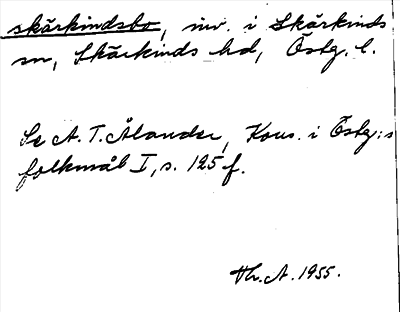 skärkindsbo, inv. i Skärkinds
sn, Skärkinds hd, Östg. l.
Se A. T. Ålander, Kons. i Östg:s
folkmål I, s. 125 f.
Hr. A. 1955.